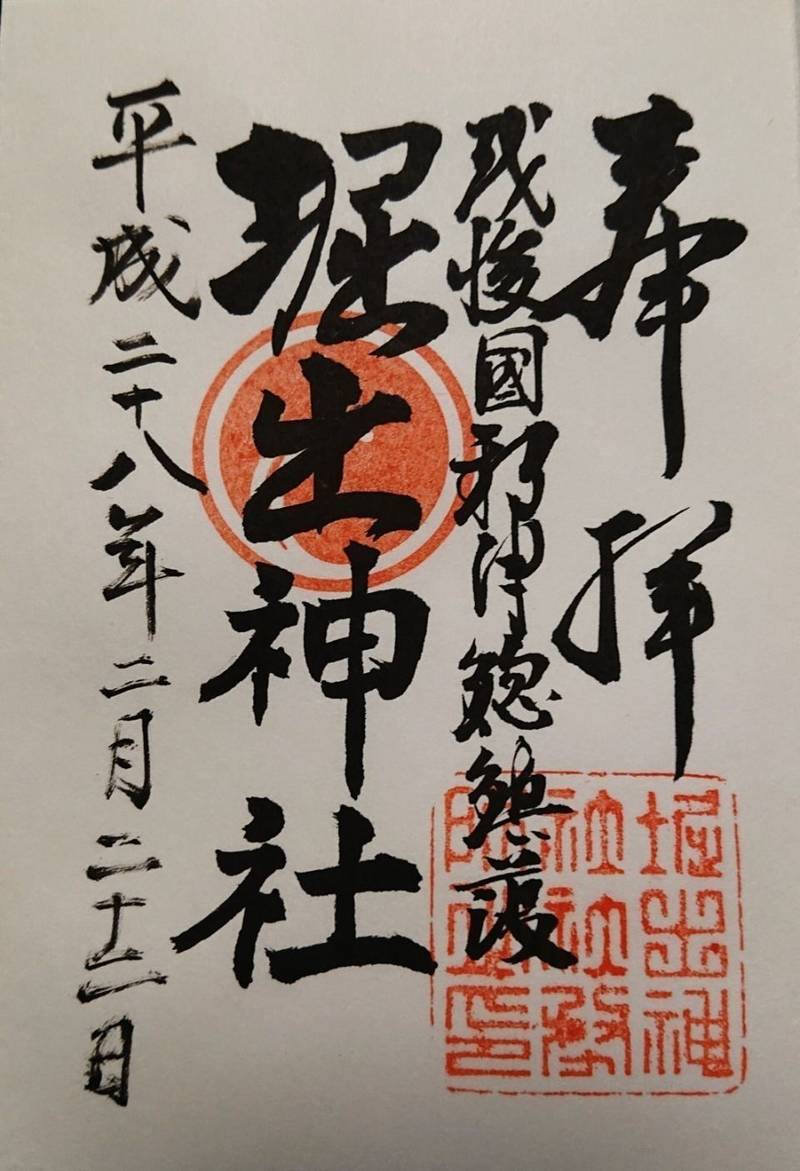 奉拝
越後國新津総鎮護
堀出神社
平成二十八年二月二十日
堀出神
社社務
所之印